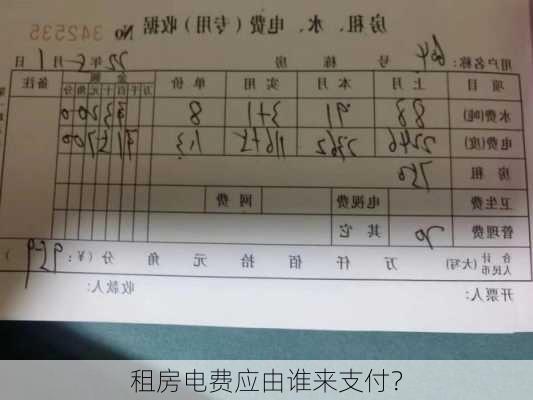 房租、水、电费(专用)收据 No 342535
用户名称: 604 号 栋 房 22年5月1日
项目 上月 本月 实用 单价 金额 备注
万千百十元角分
水费(吨) 88 91 3+1 8
电费(度) 2246 2362 1.3
房租 750
卫生费 电视费 网费
管理费 20 其它
合计人民币(大写) 万 仟 佰 拾 元 角 分(¥):
开票人: 收款人:
租房电费应由谁来支付?